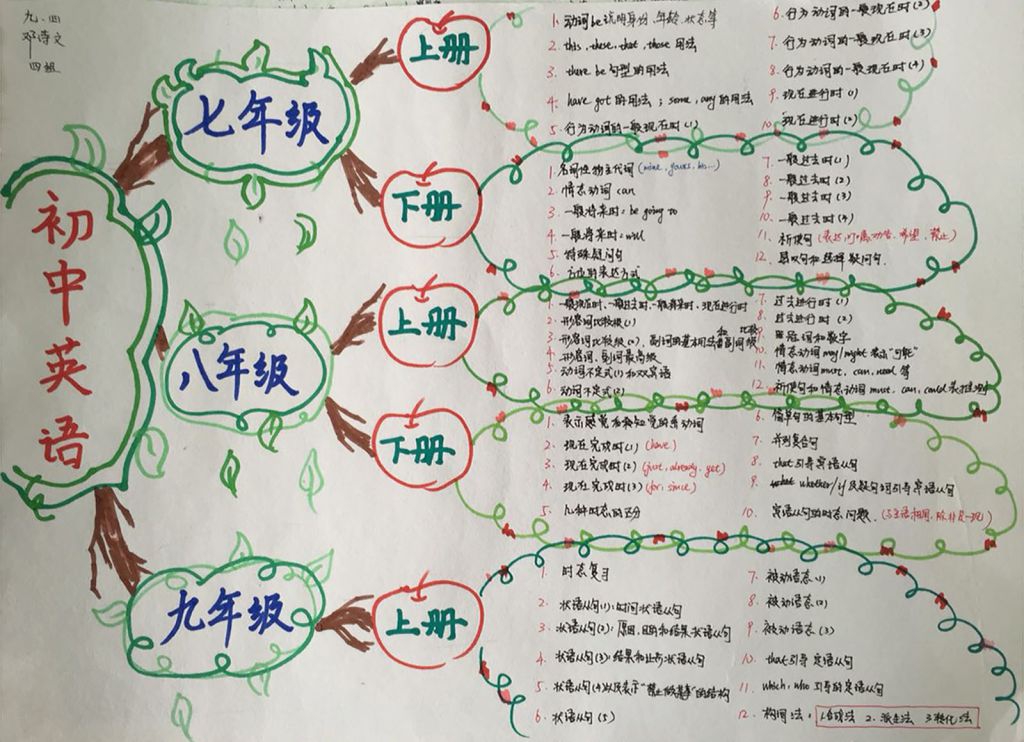 九、四
邓诗文
四组
初中英语
七年级
上册
1. 动词be说明身份、年龄、状态等
2. this, these, that, those 用法
3. there be 句型的用法
4. have got 的用法；some, any的用法
5. 行为动词的一般现在时(1)
6. 行为动词的一般现在时(2)
7. 行为动词的一般现在时(3)
8. 行为动词的一般现在时(4)
9. 现在进行时(1)
10. 现在进行时(2)
下册
1. 名词性物主代词(mine, yours, his...)
2. 情态动词 can
3. 一般将来时: be going to
4. 一般将来时: will
5. 特殊疑问句
6. 方位的表达方式
7. 一般过去时(1)
8. 一般过去时(2)
9. 一般过去时(3)
10. 一般过去时(4)
11. 祈使句(表达叮嘱、劝告、希望、禁止)
12. 感叹句和选择疑问句.
八年级
上册
1. 一般现在时、一般过去时、一般将来时、现在进行时
2. 形容词比较级(1)
3. 形容词比较级(2)、副词的基本用法和副词比较级
4. 形容词、副词最高级
5. 动词不定式(1)和双宾语
6. 动词不定式(2)
7. 过去进行时(1)
8. 过去进行时(2)
9. 冠词和数字
10. 情态动词 may/might 表示"可能"
11. 情态动词 must, can, need 等
12. 祈使句和情态动词 must, can, could
下册
1. 表示感觉和知觉的系动词
2. 现在完成时(1) (have)
3. 现在完成时(2) (just, already, yet)
4. 现在完成时(3) (for, since)
5. 几种时态的区分
6. 简单句的基本句型
7. 并列复合句
8. that引导宾语从句
9. whether/if及疑问词引导宾语从句
10. 宾语从句的时态问题.
九年级
上册
1. 时态复习
2. 状语从句(1): 时间状语从句
3. 状语从句(2): 原因、目的和结果状语从句
4. 状语从句(3): 结果和让步状语从句
5. 状语从句(4)以及表示"禁止做某事"的结构
6. 状语从句(5)
7. 被动语态(1)
8. 被动语态(2)
9. 被动语态(3)
10. that引导定语从句
11. which, who 引导的定语从句
12. 构词法: 1.合成法 2. 派生法 3.转化法